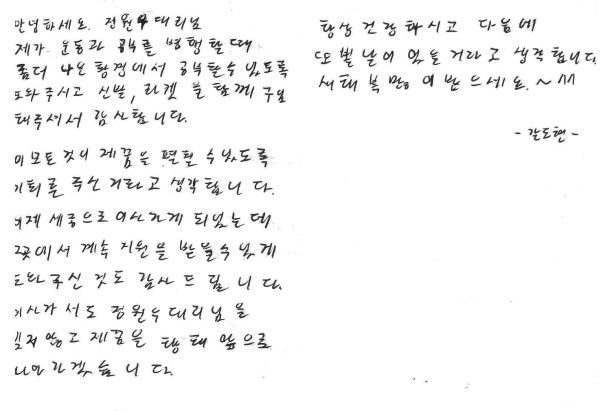 안녕하세요. 정원우대리님
제가 운동과 공부를 병행할때
좀더 나은 환경에서 공부할수 있도록
도와주시고 신발, 라켓 을 함께 구입
해주셔서 감사합니다.
이 모든 것이 제꿈을 펼칠 수있도록
기회를 주신 거라고 생각합니다.
이제 세종으로 이사가게 되었는데
그곳에서 계속 지원을 받을수 있게
도와 주신 것도 감사 드립니다.
이사가서도 정원우대리님을
잊지 않고 제꿈을 향해 앞으로
나아가겠습니다.
항상 건강하시고 다음에
또 뵐 날이 있을 거라고 생각합니다.
새해 복 많이 받으세요.~^^
-길도현-